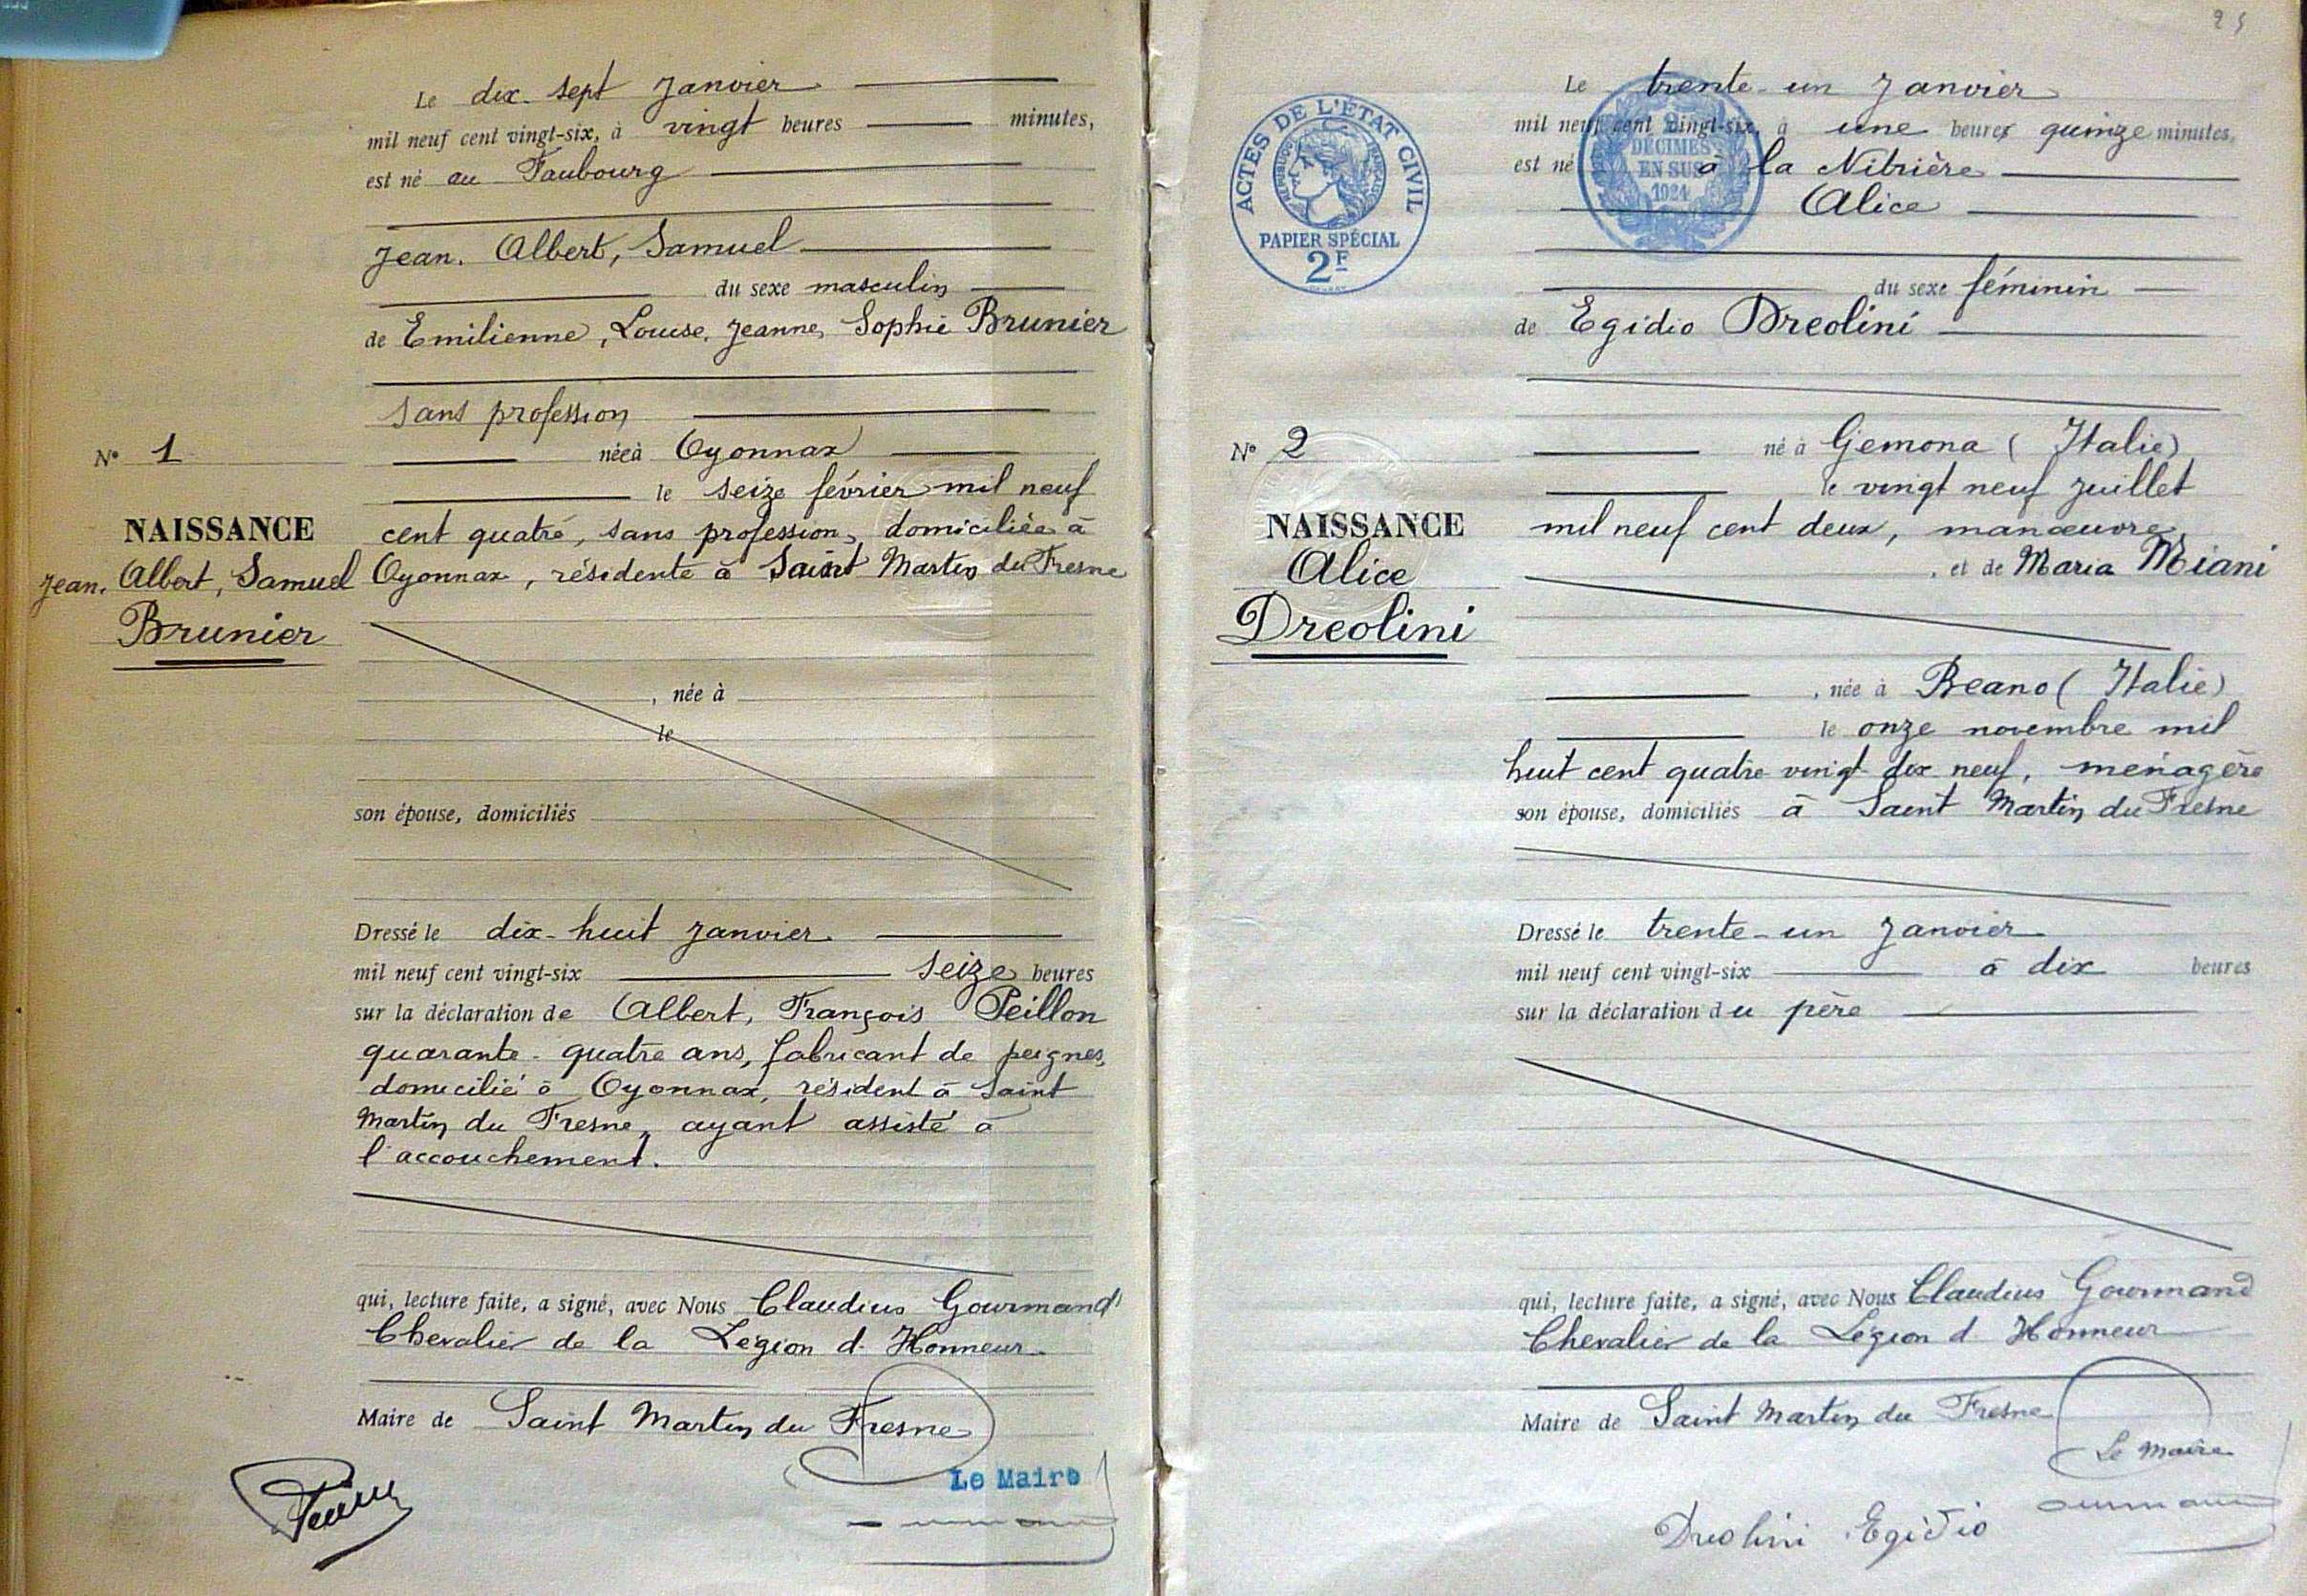 Le dix-sept Janvier
mil neuf cent vingt-six, à vingt heures minutes,
est né au Faubourg
Jean, Albert, Samuel
du sexe masculin
de Emilienne, Louise, Jeanne, Sophie Brunier
sans profession
N° 1
née à Oyonnax
le seize février mil neuf
NAISSANCE
cent quatre, sans profession, domiciliée à
Jean, Albert, Samuel
Oyonnax, résidente à Saint Martin du Fresne
Brunier
, née à
le
son épouse, domiciliés
Dressé le dix-huit Janvier
mil neuf cent vingt-six seize heures
sur la déclaration de Albert, François Peillon
quarante-quatre ans, fabricant de peignes,
domicilié à Oyonnax, résident à Saint
Martin du Fresne, ayant assisté à
l'accouchement.
qui, lecture faite, a signé, avec Nous Claudius Gourmand
Chevalier de la Légion d'Honneur
Maire de Saint Martin du Fresne
Le Maire
25
Le trente-un Janvier
mil neuf cent vingt-six, à une heures quinze minutes,
est né à la Nitrière
Alice
ACTES DE L'ÉTAT CIVIL
PAPIER SPÉCIAL
2F
DÉCIMES
EN SUS
1924
du sexe féminin
de Egidio Dreolini
N° 2
né à Gemona (Italie)
le vingt neuf Juillet
NAISSANCE
mil neuf cent deux, manœuvre
Alice
, et de Maria Miani
Dreolini
, née à Beano (Italie)
le onze novembre mil
huit cent quatre vingt dix neuf, ménagère
son épouse, domiciliés à Saint Martin du Fresne
Dressé le trente-un Janvier
mil neuf cent vingt-six à dix heures
sur la déclaration du père
qui, lecture faite, a signé, avec Nous Claudius Gourmand
Chevalier de la Légion d'Honneur
Maire de Saint Martin du Fresne
Le Maire
Dreolini Egidio